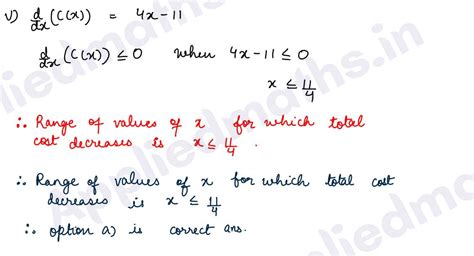 v) d/dx (C(x)) = 4x-11
d/dx (C(x)) ≤ 0 when 4x-11 ≤ 0
x ≤ 11/4
∴ Range of values of x for which total
cost decreases is x ≤ 11/4 .
∴ Range of values of x for which total cost
decreases is x ≤ 11/4
∴ option a) is correct ans.
Appliedmaths.in